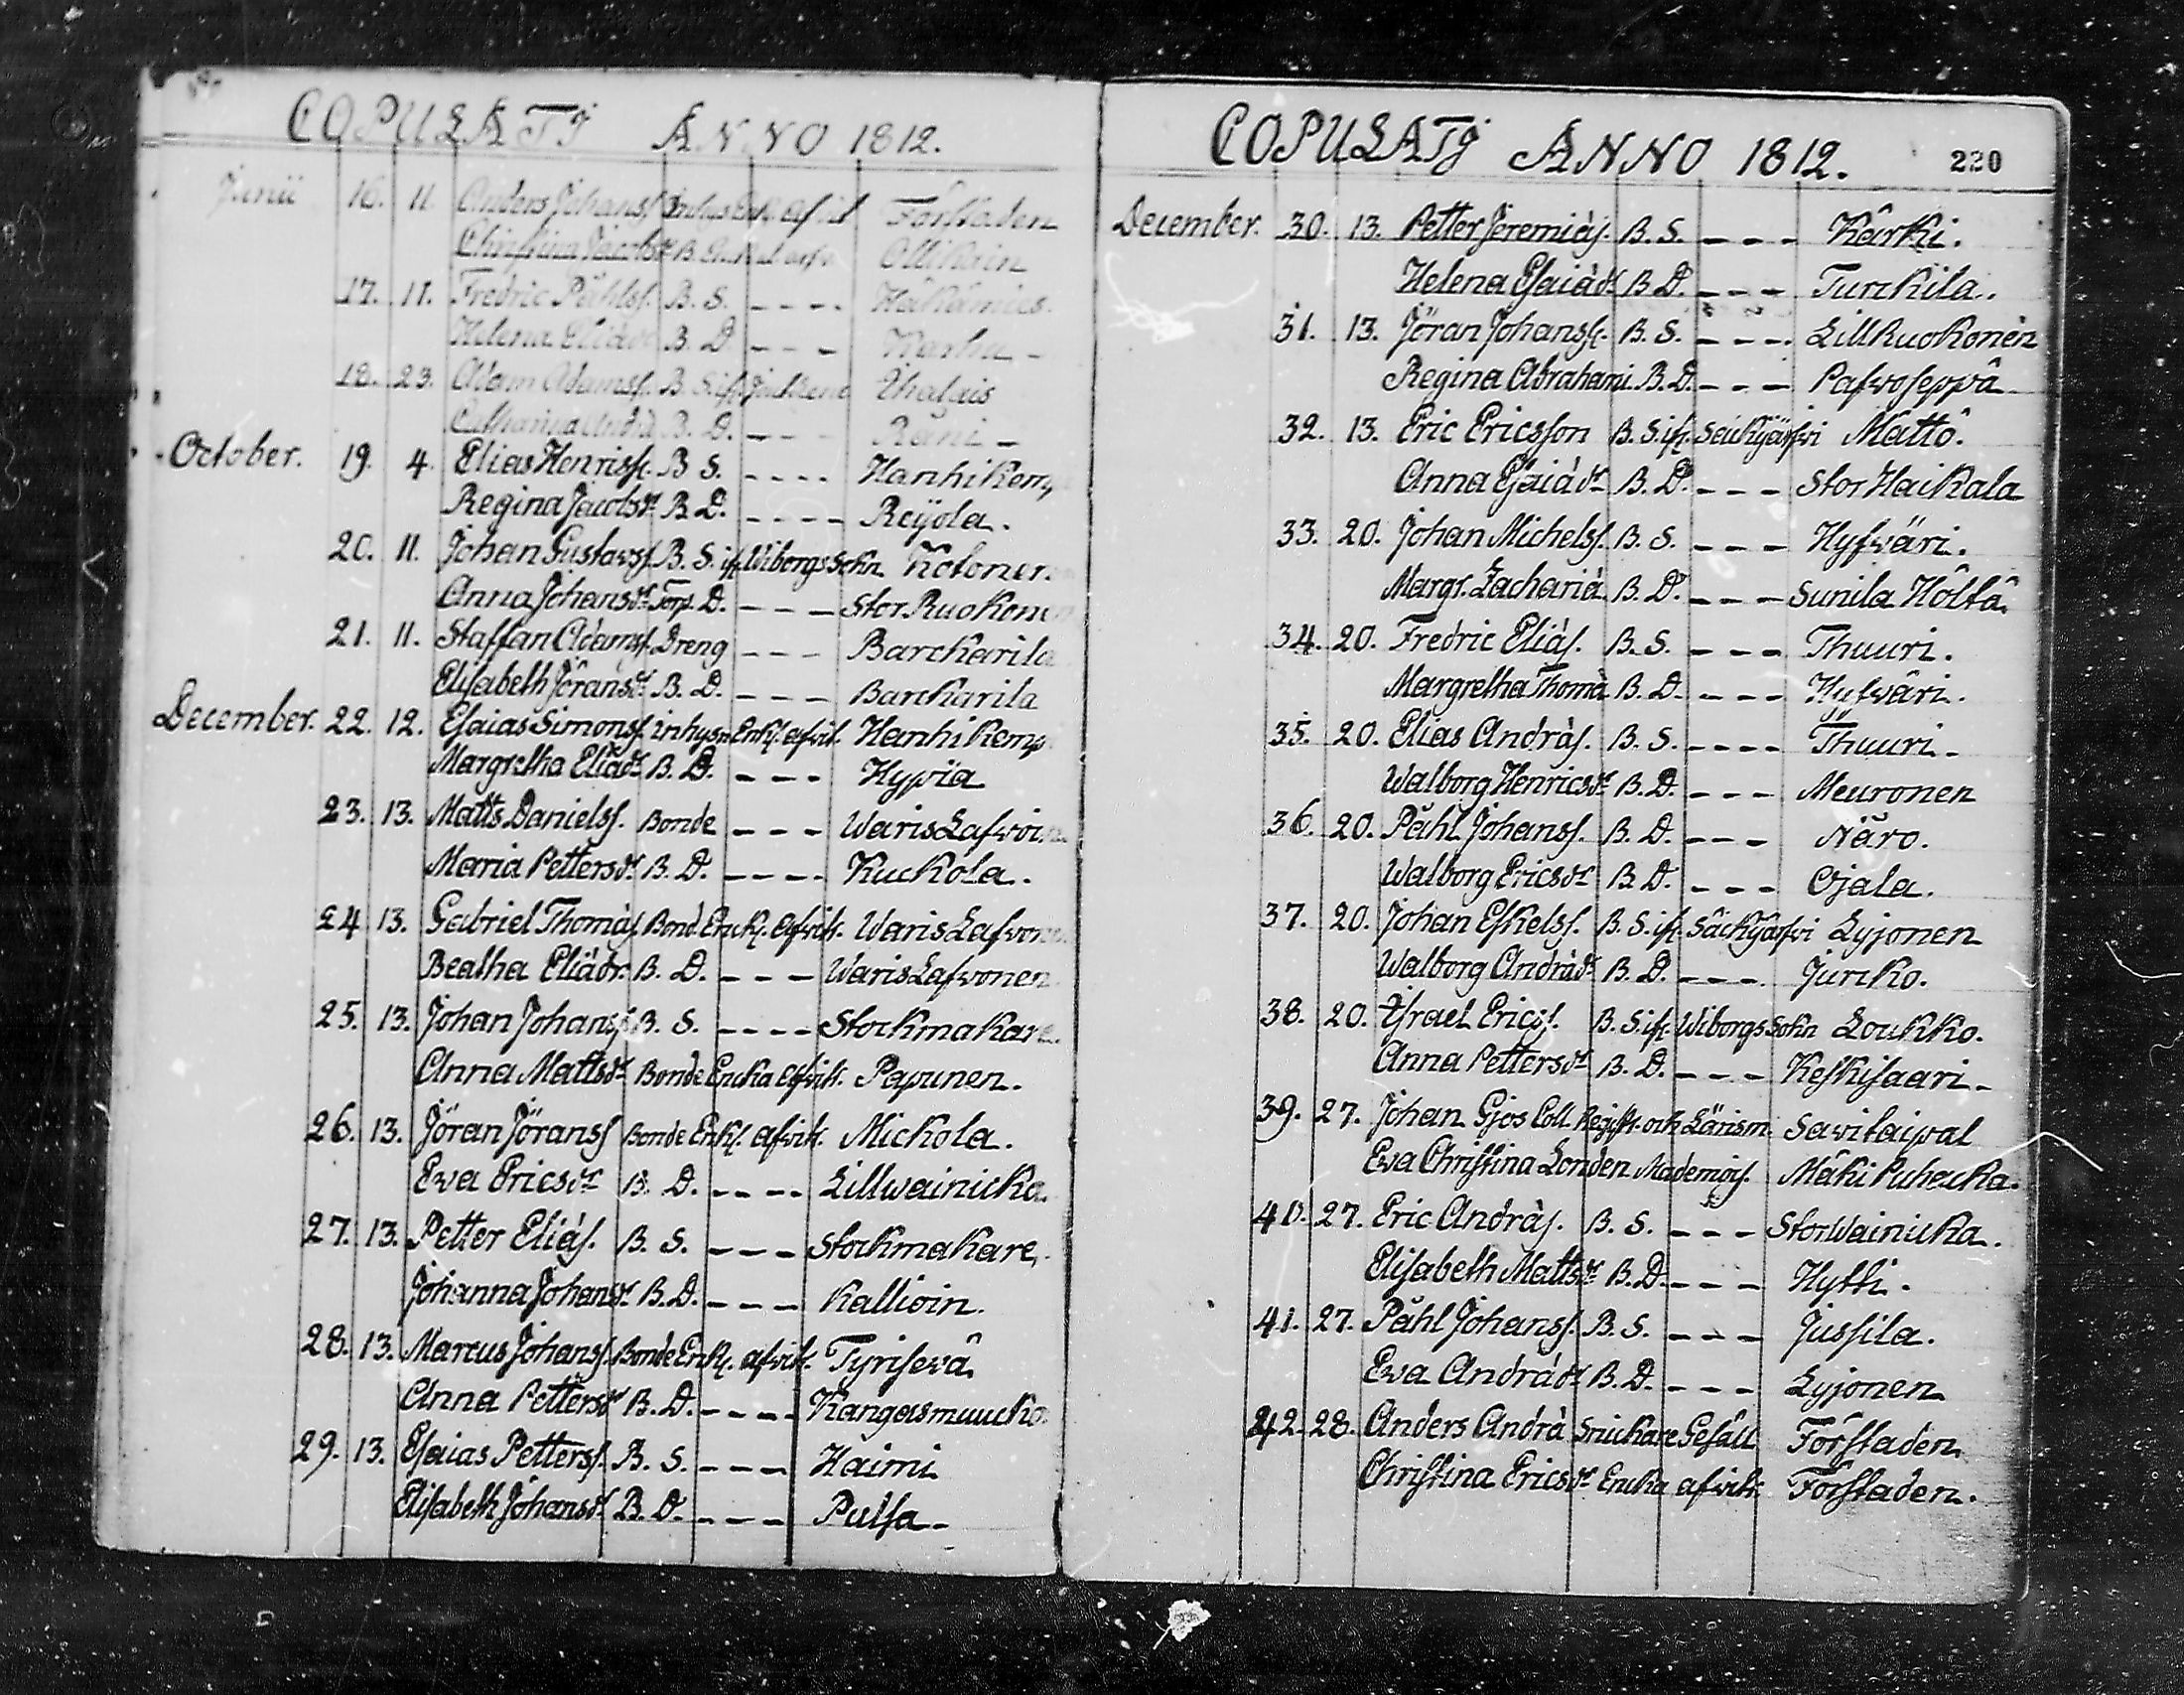 COPULATJ ANNO 1812.
Junii 16. 11. Anders Johanss. Enkl. afvit Förstaden
Christina Jacobsdr B. Ollikain
17. 11. Fredric Påhlss. B. S. - - - -
Helena Eliædr B. D. - - - Karhu -
18. 23. Adam Adamss. B. S. ifr. Ihalais
Catharina Andrä B. D. - - - Räni -
October. 19. 4. Elias Henrics. B S. - - - - Hanhikemp
Regina Jacobsdr B. D. - - - - Reijola.
20. 11. Johan Gustavss. B. S. ifr. Wiborgs Sokn Kotoner.
Anna Johansdr Torp. D. - - - Stor Ruokone
21. 11. Staffan Adamss. Dreng - - - Barckarila
Elisabeth Jöransdr B. D. - - - Barckarila
December. 22. 12. Esaias Simonss. inhysn Enkl. afvit. Hanhikemp
Margretha Eliädr B. D. - - - Hypiä
23. 13. Matts Danielss. Bonde - - - WarisLafvoi
Maria Pettersdr B. D. - - - - Kuckola.
24 13. Gabriel Thomäs. Bond. Enckl. afvit. WarisLafvon
Beatha Eliädr. B. D. - - - WarisLafvonen
25. 13. Johan Johanss. B. S. - - - - Stockmakare
Anna Mattsdr Bonde Encka afvit. Papunen.
26. 13. Jöran Jöranss Bonde Enkl. afvit. Mickola.
Ewa Ericsdr B. D. - - - - Lillwainicka.
27. 13. Petter Eliäs. B. S. - - - Stockmakare.
Johanna Johansdr B. D. - - - Kallioin.
28. 13. Marcus Johanss. Bonde Enkl. afvit. Tyrisevä
Anna Pettersdr B. D. - - - - Kangasmuucko
29. 13. Esaias Petterss. B. S. - - - Haimi
Elisabeth Johansdr B. D. - - - Pulsa -
COPULATJ ANNO 1812. 220
December. 30. 13. Petter Jeremiäs. B. S. - - - Kärki.
Helena Esaiädr B. D. - - - Turckila.
31. 13. Jöran Johanss. B. S. - - - - LillRuokonen
Regina Abrahami B. D. - - - Pafvoseppä
32. 13. Eric Ericsson B. S. ifr. Säckjärfvi Mattö.
Anna Esaiädr B. D. - - - StorHaikala
33. 20. Johan Michelss. B. S. - - - Hyfväri.
Margr. Zachariä B. D. - - - Sunila Höltä
34. 20. Fredric Eliäs. B. S. - - - Thuuri.
Margretha Thomä B. D. - - - Hyfväri.
35. 20. Elias Andräs. B. S. - - - - Thuuri -
Walborg Henricsdr B. D. - - - Meuronen
36. 20. Påhl Johanss. B. D. - - - Näro.
Walborg Ericsdr B. D. - - - Ojala.
37. 20. Johan Eskelss. B. S. ifr. Säckjärfvi Lyjonen
Walborg Andrädr B. D. - - - Jurcko.
38. 20. Israel Ericss. B. S. ifr. Wiborgs Sokn Loukko.
Anna Pettersdr B. D. - - - Keskisaari -
39. 27. Johan Gjös Coll. Regist. och Länsm. Savitaipal
Ewa Christina Londen Mademois. Mäki Puhacka.
40. 27. Eric Andräs. B. S. - - - StorWainicka.
Elisabeth Mattsdr B. D. - - - Hytti.
41. 27. Påhl Johanss. B. S. - - - Jussila.
Ewa Andrädr B. D. - - - Lyjonen
42. 28. Anders Andrä Snickare Gesäll Förstaden
Christina Ericsdr Encka afvit. Förstaden.